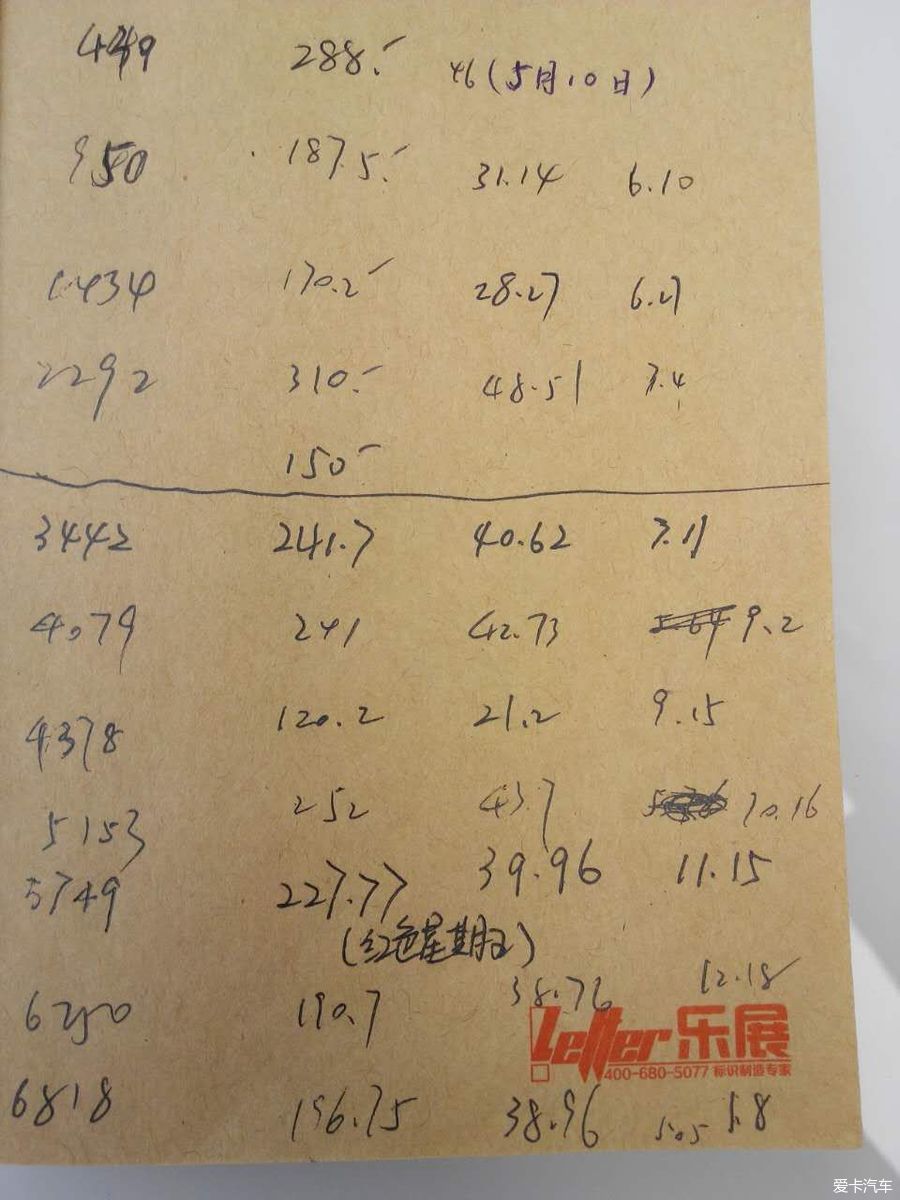 449 288. 46 (5月10日)
950 187.5 31.14 6.10
1434 170.2 28.27 6.27
2292 310. 48.51 7.4
150
3442 241.7 40.62 7.11
4079 241 42.73 9.2
4378 120.2 21.2 9.15
5153 252 43.7 10.16
5749 227.77 39.96 11.15
(红色星期五)
6250 190.7 38.76 12.18
Letter 乐展
400-680-5077 标识制造专家
6818 196.75 38.96 5.05 1.8
爱卡汽车